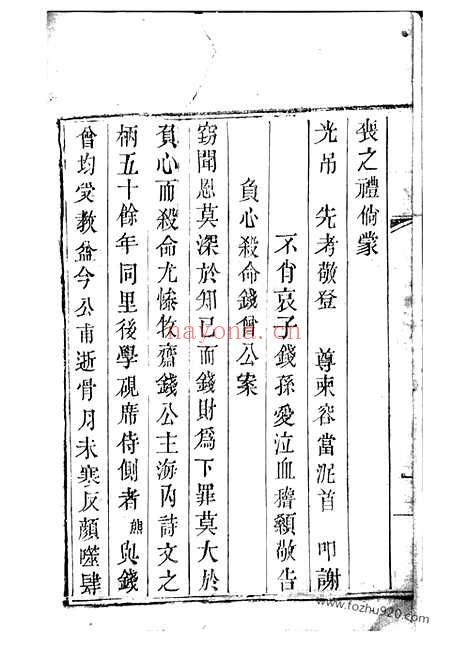 喪之禮倘蒙
光吊　先考敬登　尊柬容當泥首　叩謝
不肖哀子錢孫愛泣血稽顙敬告
負心殺命錢曾公案
竊聞恩莫深於知己而錢財爲下罪莫大於
負心而殺命尤慘牧齋錢公主海內詩文之
柄五十餘年同里後學硯席侍側者熊與錢
曾均受教益今公甫逝骨月未寒反顏噬肆
nayona.cn
www.fozhu920.com